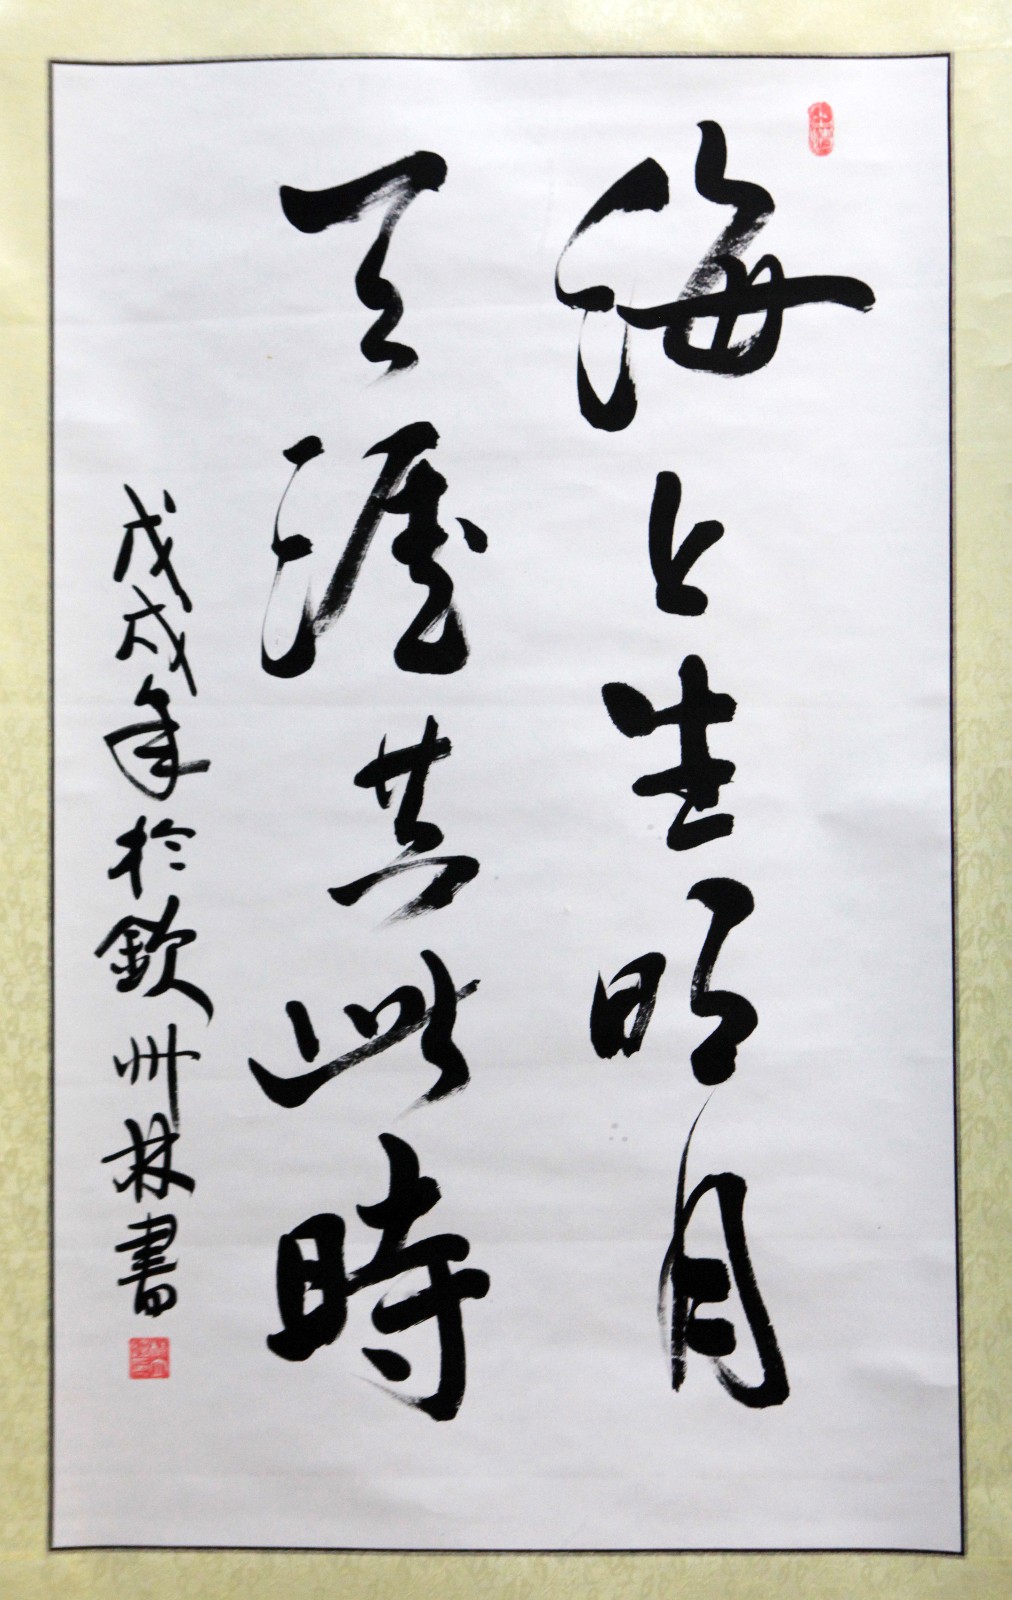 海上生明月
天涯共此時
戊戌年於欽州林書